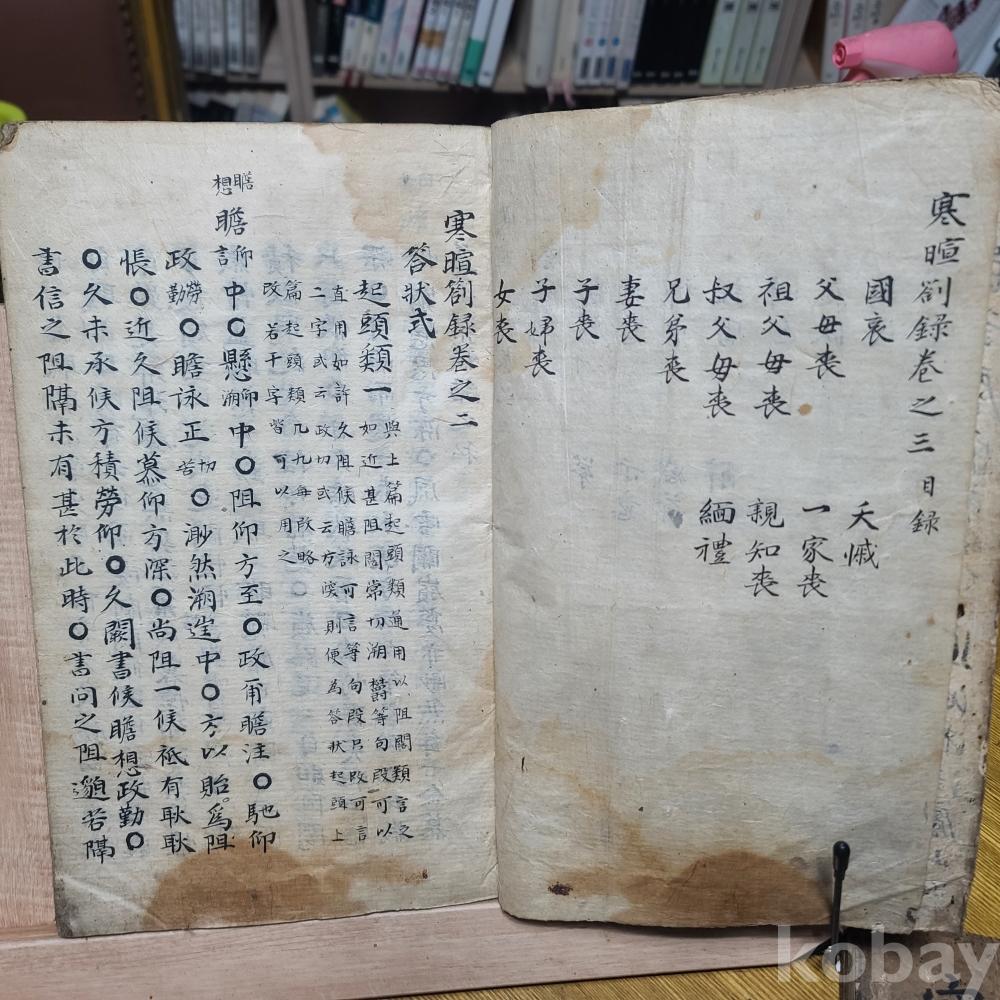 寒暄劄錄卷之三目錄
國哀
父母喪
祖父母喪
叔父母喪
兄弟喪
妻喪
子喪
子婦喪
女喪
夭慽
一家喪
親知喪
緬禮
寒暄劄録卷之二
答狀式
起頭類一與上篇起頭類通用以阻闊類言之
如近甚阻闊常切溯欝等句段可以
直用如許久阻候瞻詠可言等句段只改可言
二字或云政切或云方深則便為答狀起頭上
篇起頭類凡九每段略
改若干字皆可以用之
瞻想
瞻仰言中〇懸仰溯中〇阻仰方至〇政爾瞻注〇馳仰
政勞勤〇瞻詠正切苦〇渺然溯𨓏中〇方以貽爲阻
悵〇近久阻候慕仰方深〇尚阻一候祗有耿耿
〇久未承候方積勞仰〇久闕書候瞻想政勤〇
書信之阻隔未有甚於此時〇書问之阻邈若隔
kobay